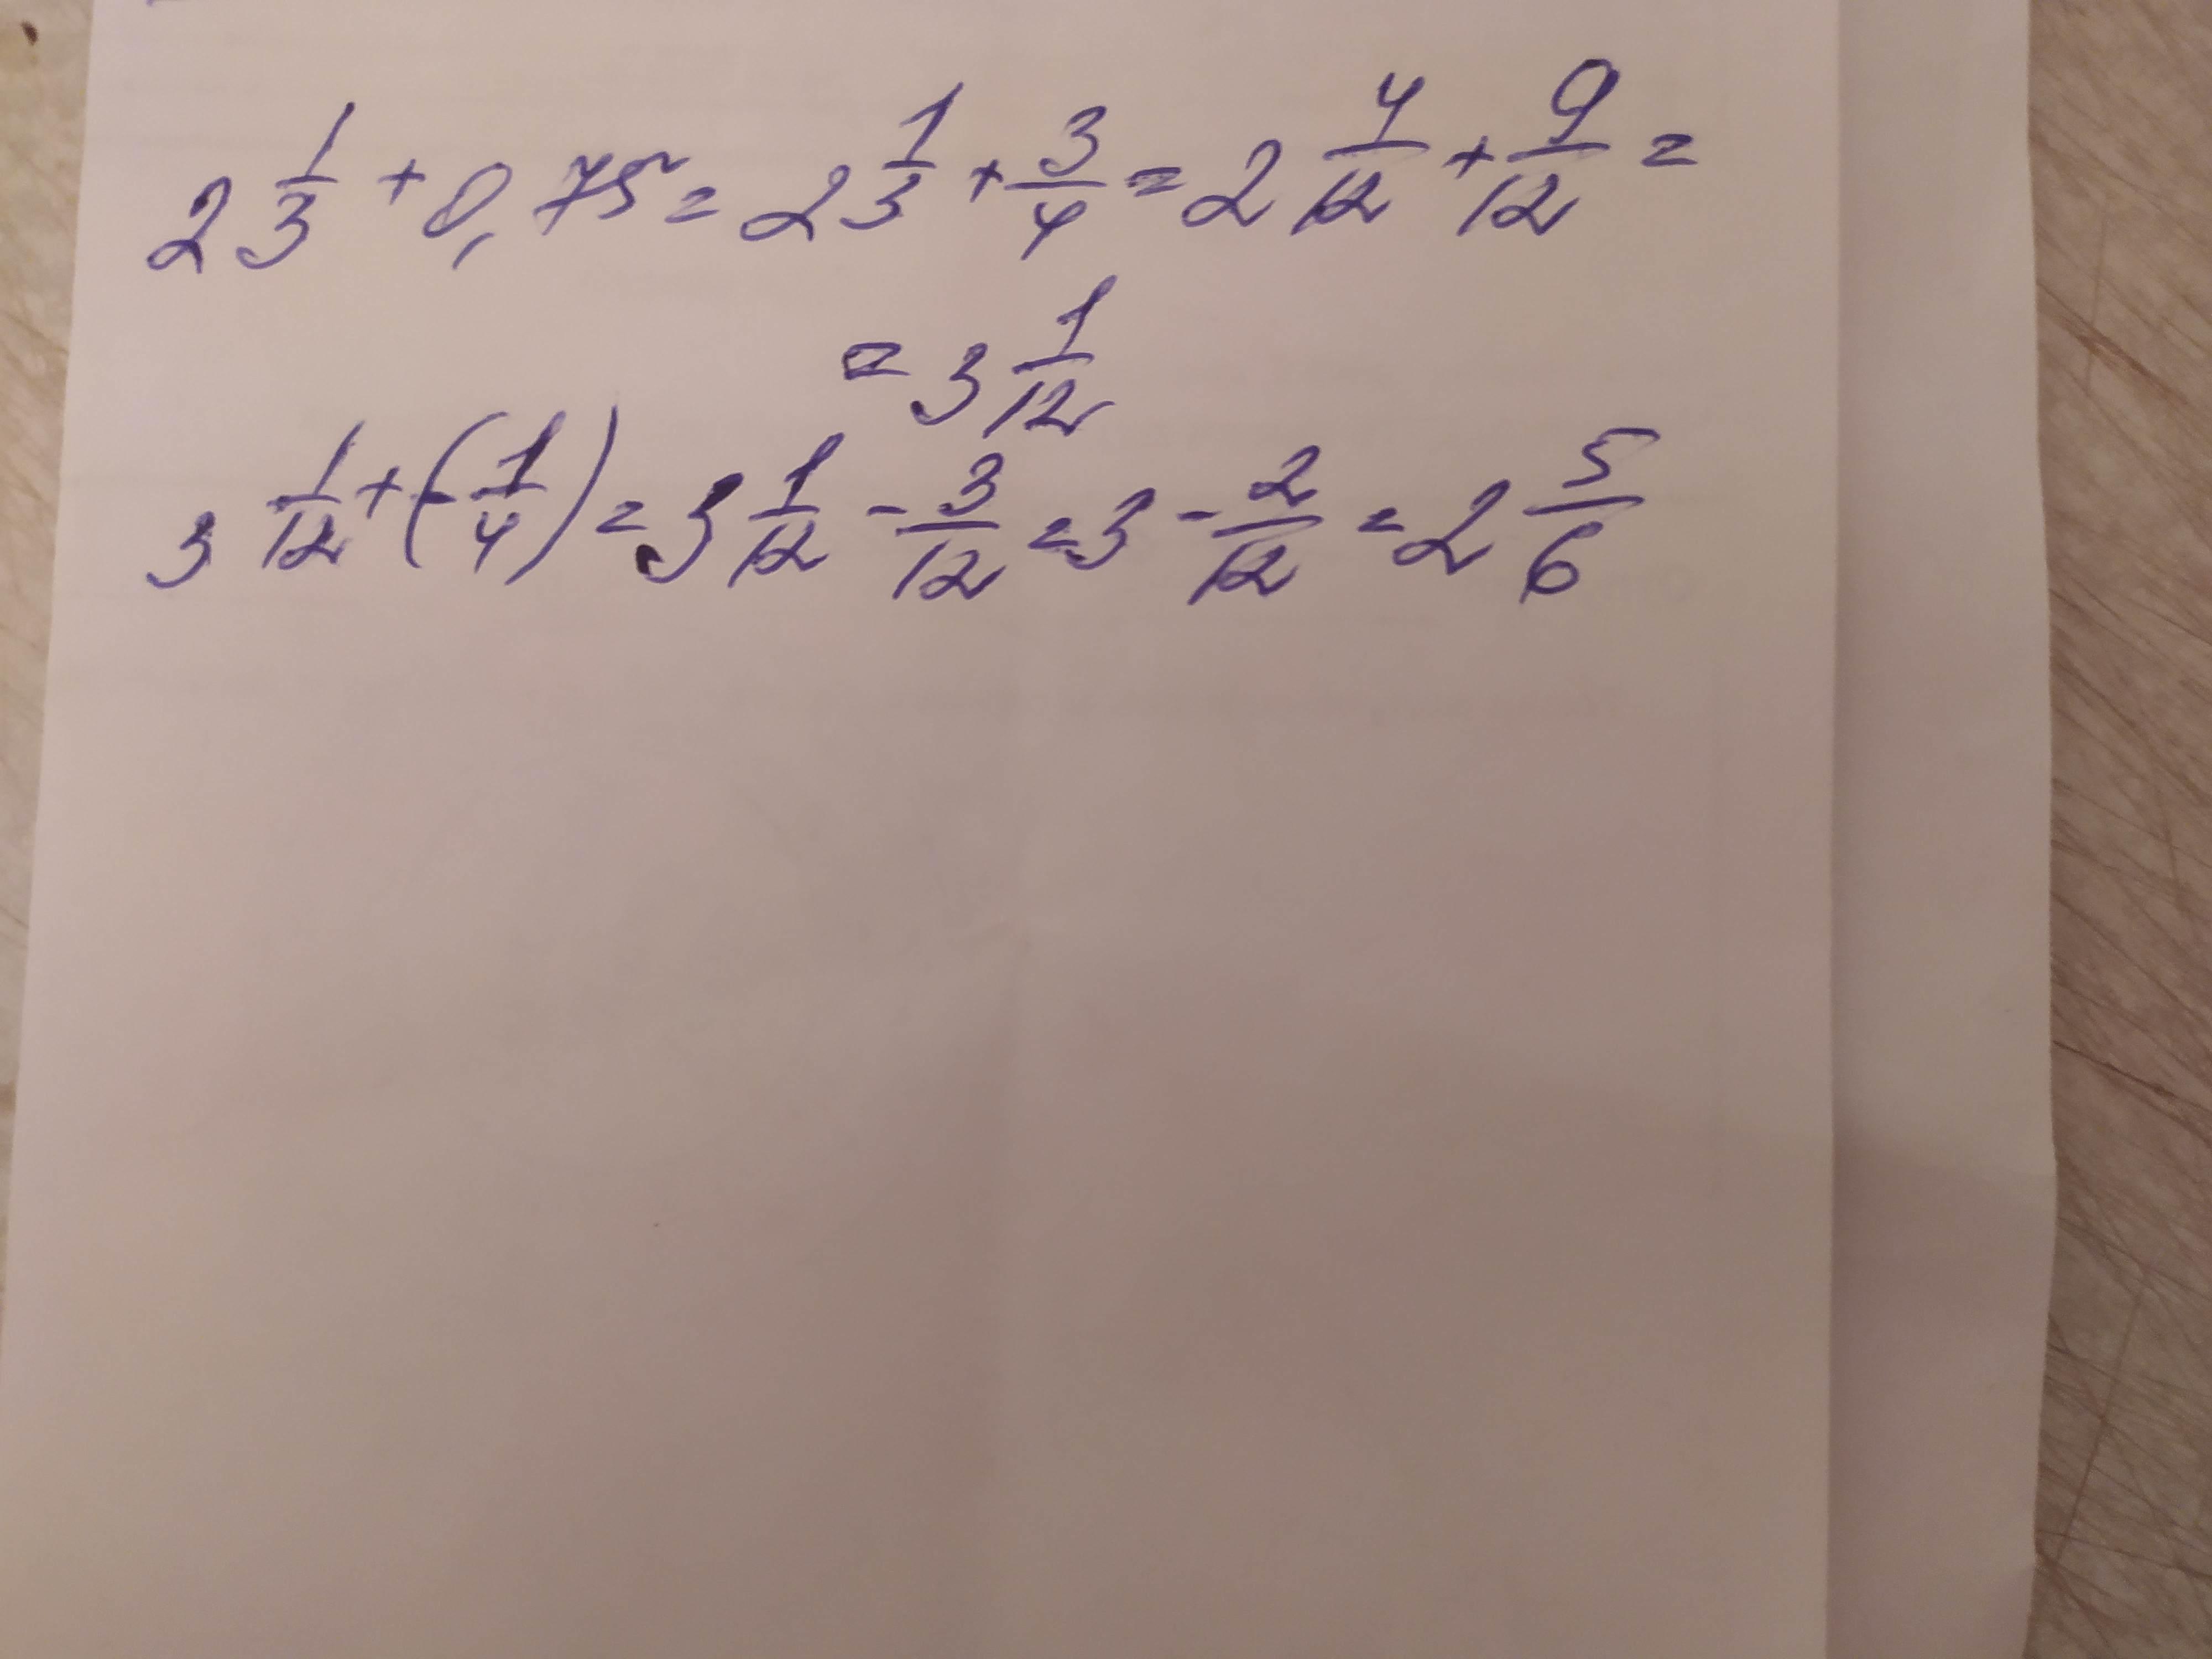 2 1/3 + 0,75 = 2 1/3 + 3/4 = 2 4/12 + 9/12 =
= 3 1/12
3 1/12 + (- 1/4) = 3 1/12 - 3/12 = 3 - 2/12 = 2 5/6